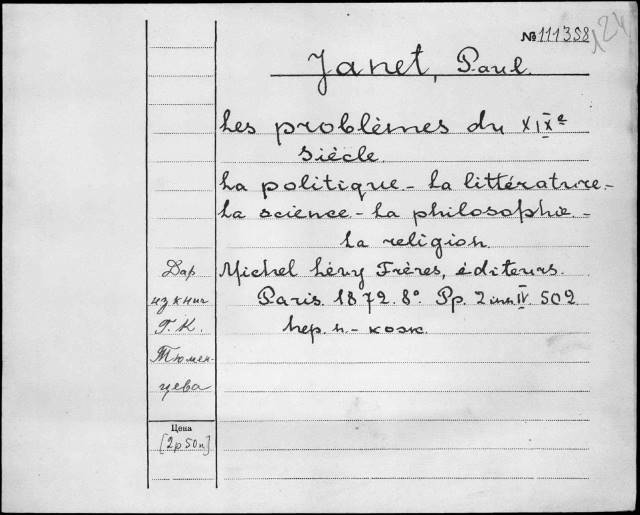 № 111358
124
Janet, Paul.
Les problèmes du XIXe
siècle.
La politique – La littérature –
La science – La philosophie –
La religion.
Michel Lévy Frères, éditeurs.
Paris. 1872. 8°. Pp. 2 нн. IV 502.
пер. п.-кож.
Дар
из книг
Г. К.
Тюмен-
цева
Цена
[2р50к]